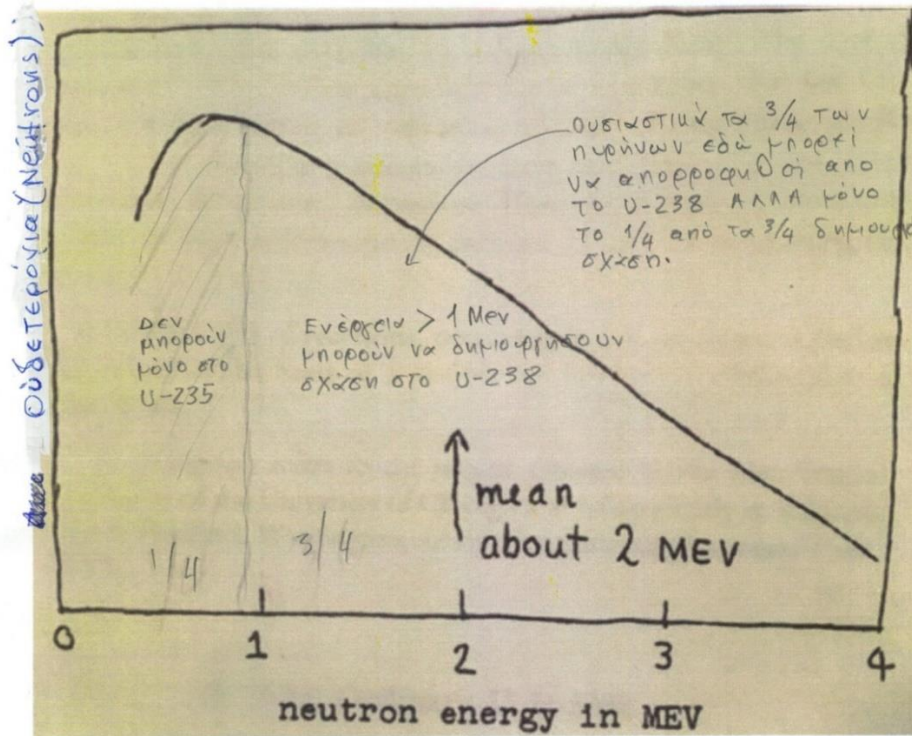 Ουδετερόνια (Neutrons)
Ουσιαστικά τα 3/4 των
πυρήνων εδώ μπορεί
να απορροφηθεί απο
το U-238 ΑΛΛΑ μόνο
το 1/4 από τα 3/4 δημιουρ
σχάση.
Δεν
μπορούν
μόνο στο
U-235
Ενέργεια > 1 Mev
μπορούν να δημιουργήσουν
σχάση στο U-238
1/4
3/4
mean
about 2 MEV
0
1
2
3
4
neutron energy in MEV